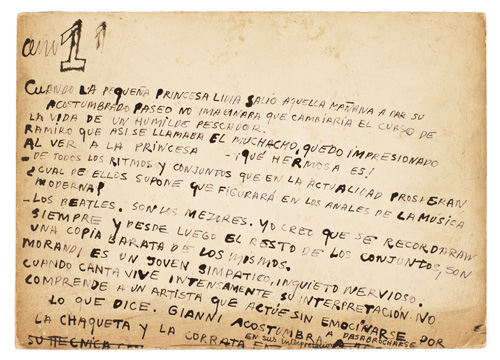 1
CUANDO LA PEQUEÑA PRINCESA LIVIA SALIÓ AQUELLA MAÑANA A DAR SU
ACOSTUMBRADO PASEO NO IMAGINARA QUE CAMBIARÍA EL CURSO DE
LA VIDA DE UN HUMILDE PESCADOR.
RAMIRO QUE ASI SE LLAMABA EL MUCHACHO, QUEDO IMPRESIONADO
AL VER A LA PRINCESA - ¡QUÉ HERMOSA ES!
- DE TODOS LOS RITMOS Y CONJUNTOS QUE EN LA ACTUALIDAD PROSIERAN
¿CUAL DE ELLOS SUPONE QUE FIGURARÁ EN LOS ANALES DE LA MUSICA
MODERNA?
- LOS BEATLES. SON LOS MEJORES. YO CREO QUE SE RECORDARAN
SIEMPRE Y DESDE LUEGO EL RESTO DE LOS CONJUNTOS, SON
UNA COPIA BARATA DE LOS MISMOS.
MORANDI ES UN JOVEN SIMPATICO, INQUIETO NERVIOSO.
CUANDO CANTA VIVE INTENSAMENTE SU INTERPRETACIÓN. NO
COMPRENDE A UN ARTISTA QUE ACTÚE SIN EMOCINARSE POR
LO QUE DICE. GIANNI ACOSTUMBRA A DASABROCHARSE
LA CHAQUETA Y LA CORBATA EN SUS
SU TECNICA